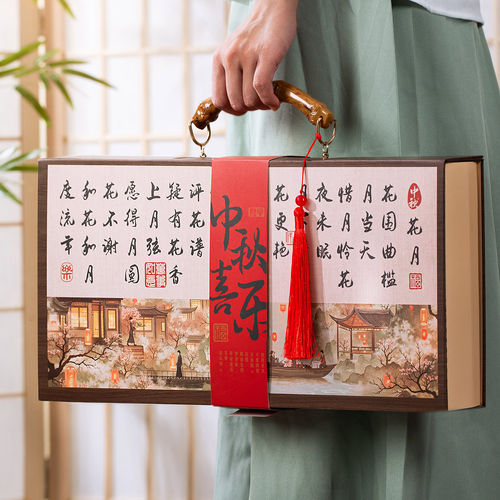 中秋
花月
花围曲槛
月当天
惜月怜花
夜未眠
花更艳
中秋喜乐
评花谱
疑有花香
上月弦
愿得月圆
花不谢
和花和月
度流年